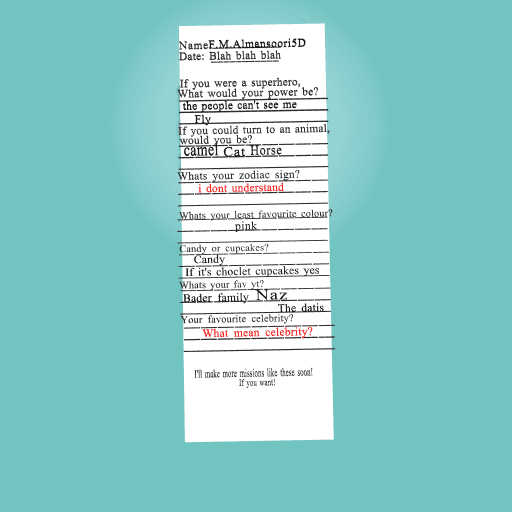 Name:F.M.Almansoori5D
Date: Blah blah blah
If you were a superhero,
What would your power be?
the people can't see me
Fly
If you could turn to an animal,
would you be?
camel Cat Horse
Whats your zodiac sign?
i dont understand
Whats your least favourite colour?
pink
Candy or cupcakes?
Candy
If it's choclet cupcakes yes
Whats your fav yt?
Bader family Naz
The datis
Your favourite celebrity?
What mean celebrity?
I'll make more missions like these soon!
If you want!